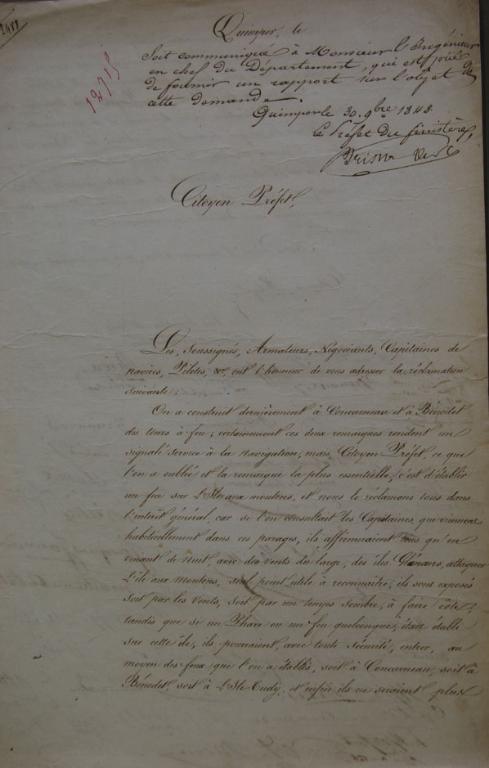 Quimper, le
Soit communiqué à Monsieur l'Ingénieur
en chef du Département, qui est prié
de fournir un rapport sur l'objet de
cette demande.
Quimper le 30. 9bre 1848.
Le Préfet du finistère,
12715
Citoyen Préfet,
Les Soussignés, Armateurs, Négociants, Capitaines de
navires, Pilotes, &a ont l'honneur de vous adresser la réclamation
suivante:
On a construit dernièrement à Concarneau et à Bénodet
des tours à feu; certainement ces deux remarques rendent un
signalé service à la navigation; mais, Citoyen Préfet, ce que
l'on a oublié et la remarque la plus essentielle, c'est d'établir
un feu sur l'Ile aux moutons, et nous le réclamons tous dans
l'intérêt général, car si l'on consultait les Capitaines, qui
habituellement dans ces parages, ils affirmeraient tous qu'en
venant de nuit, avec des vents du large, des îles Glénans, attaquer
l'île aux moutons, seul point utile à reconnaître, ils sont exposés
soit par les vents, soit par un temps sombre, à faire côte;
tandis que si un Phare ou un feu quelconque, était établi
sur cette île, ils pourraient, avec toute sécurité, entrer, au
moyen des feux que l'on a établis, soit à Concarneau, soit à
Bénodet, soit à l'Ile Tudy, et enfin ils ne seraient plus